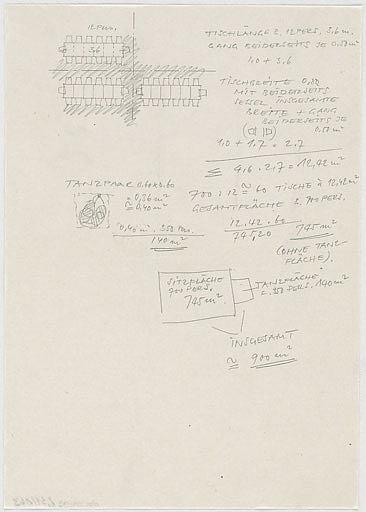 12 PERS.
3,6
TISCHLÄNGE 2. 12 PERS. 3,6 m.
GANG BEIDERSEITS JE 0.50 m
1,0 + 3,6
TISCHBREITE 0,80
MIT BEIDERSEITS
SESSEL INSGESAMT
BREITE + GANG
BEIDERSEITS JE
0.50 m
1,0 + 1.7 = 2.7
Σ 4,6 . 2.7 = 12,42 m²
TANZPAAR 0.60 x 0.60
= 0,36 m²
≈ 0,40 m²
0,40 m² . 350 PAA.
140 m²
700 : 12 ≈ 60 TISCHE à 12,42 m²
GESAMTFLÄCHE 2. 700 PERS.
12.42 . 60
745,20
745 m²
(OHNE TANZ-
FLÄCHE).
SITZFLÄCHE
700 PERS.
745 m²
TANZFLÄCHE
F. 350 PERS. 140 m²
INSGESAMT
≈ 900 m²